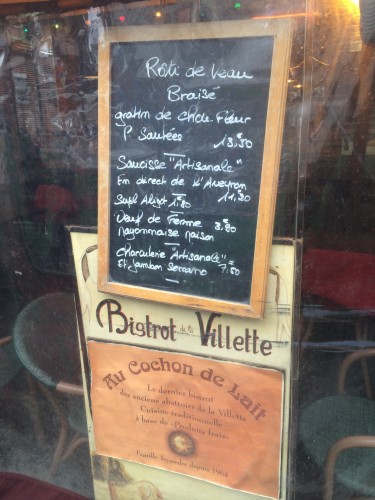 Rôti de Veau
Braisé
gratin de chou. Fleur
P. Sautées 13,50
Saucisse "Artisanale"
En direct de l'Aveyron
11,50
Supl Aligot 1,80
Oeuf de Ferme 3,80
Mayonnaise Maison
Charcuterie "Artisanale"
Et Jambon Serrano 7,50
Bistrot de la Villette
Au Cochon de Lait
Le dernier bistrot
des anciens abattoirs de la Villette
Cuisine traditionnelle
à base de «Produits frais»
Famille depuis